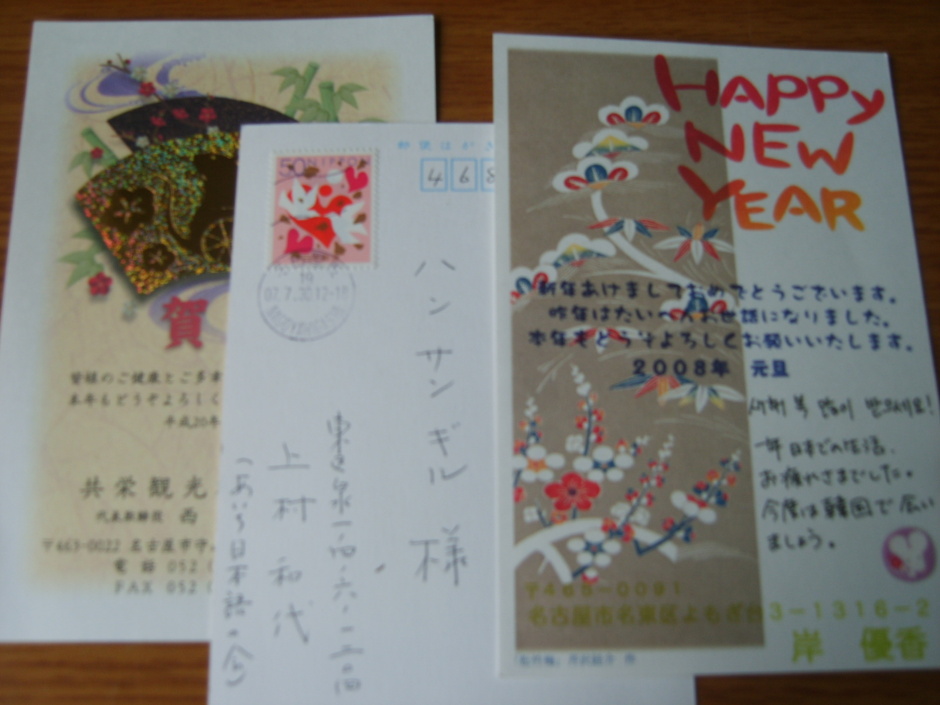 賀
皆様のご健康とご多幸
本年もどうぞよろしく
平成20年
共栄観光
代表取締役 西
〒463-0022 名古屋市守
電話 052
FAX 052
郵便はがき
468
50 NIPPON
07.7.30 12-18
ハンサンギル 様
上村和代
(あいち日本語の会)
HAPPY
NEW
YEAR
新年あけましておめでとうございます。
昨年はたいへんお世話になりました。
本年もどうぞよろしくお願いいたします。
2008年 元旦
一年日本での生活、
お疲れさまでした。
今度は韓国で会い
ましょう。
〒465-0091
名古屋市名東区よもぎ台3-1316-2
岸 優香